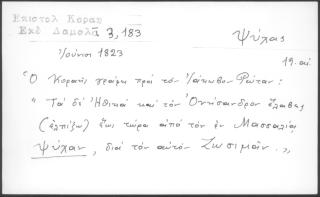 Επιστολ Κοραη
Εκδ Δαμαλᾶ 3,183
Ψύχας
Ἰούνιος 1823
19. αἰ.
Ὁ Κοραῆς γράφει πρὸς τὸν Ἰάκωβον Ρώταν:
"Τὰ δὲ Ἠθικὰ καὶ τὸν Ὀνήσανδρον ἔλαβες
(ἐλπίζω) ἕως τώρα ἀπὸ τὸν ἐν Μασσαλίᾳ
Ψύχαν, διὰ τὸν αὐτὸν Ζωσιμᾶν.,,